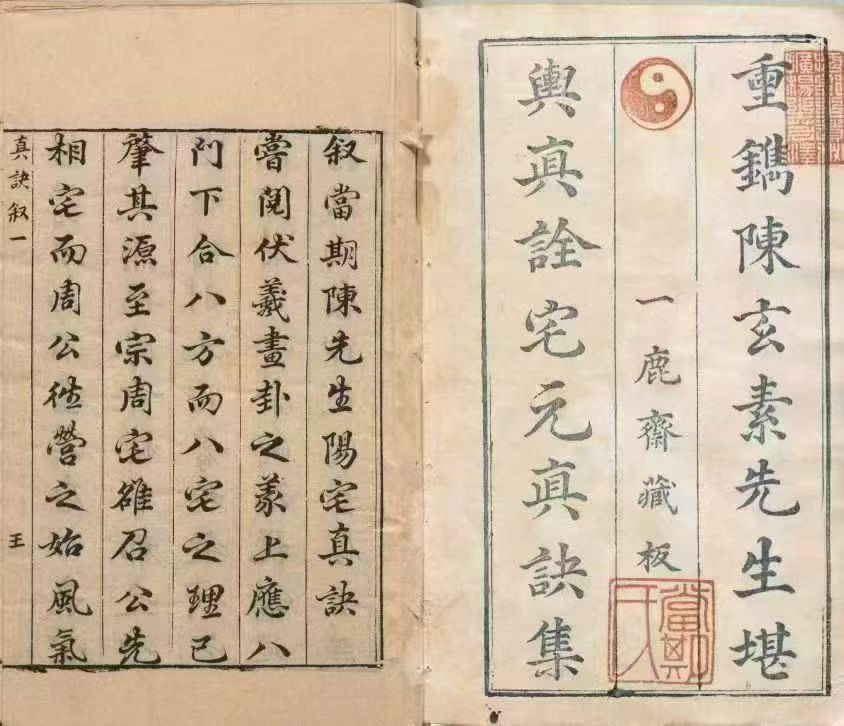 重鐫陳玄素先生堪
一鹿齋藏板
輿真詮宅元真訣集
當期
千人
叙當期陳先生陽宅真訣
嘗閱伏羲畫卦之爻上應八
門下合八方而八宅之理已
肇其源至宗周宅雒召公先
相宅而周公徃營之始風氣
真訣叙一
王